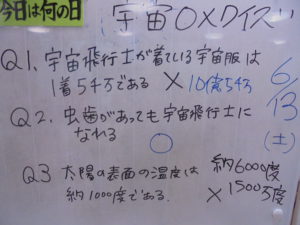 今日は何の日
宇宙〇×クイズ
Q1、宇宙飛行士が着ている宇宙服は
1着5千万である × 10億5千万
Q2、虫歯があっても宇宙飛行士に
なれる 〇
Q3 太陽の表面の温度は 約6000度
約1000度である. × 1500万度
6/13
(土)